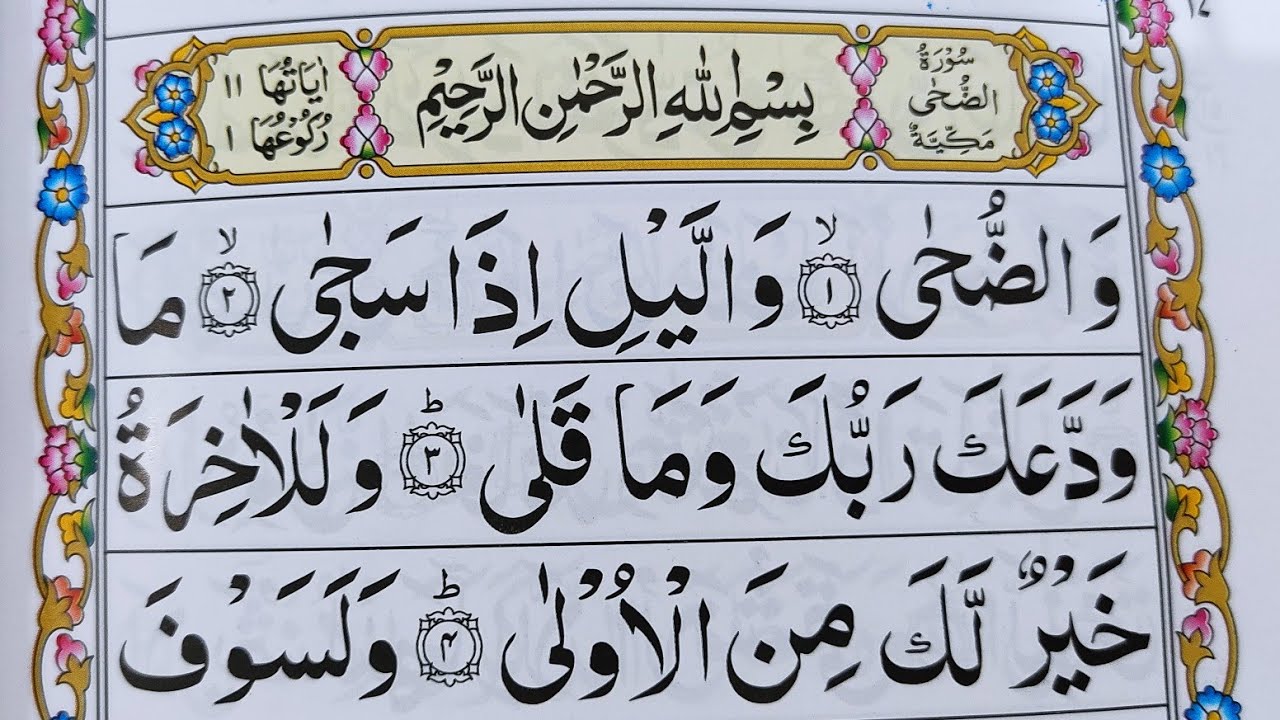 ١٤
سُوْرَةُ
الضُّحٰى
مَكِّيَّةٌ
بِسْمِ اللّٰهِ الرَّحْمٰنِ الرَّحِيْمِ
اٰيَاتُهَا ١١
رُكُوْعُهَا ١
وَالضُّحٰى ۙ‏﴿١﴾ وَالَّيْلِ اِذَا سَجٰى ۙ‏﴿٢﴾ مَا
وَدَّعَكَ رَبُّكَ وَمَا قَلٰى ؕ‏﴿٣﴾ وَلَلْاٰخِرَةُ
خَيْرٌ لَّكَ مِنَ الْاُوْلٰى ؕ‏﴿٤﴾ وَلَسَوْفَ